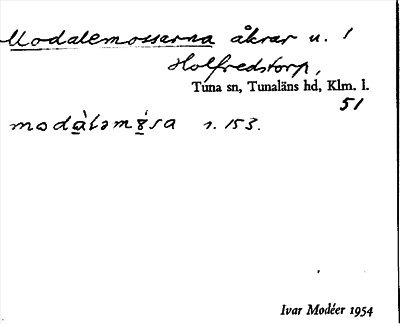 Modalemossarna åkrar u. 1
Holfredstorp,
Tuna sn, Tunaläns hd, Klm. l.
51
s. 153.
Ivar Modéer 1954